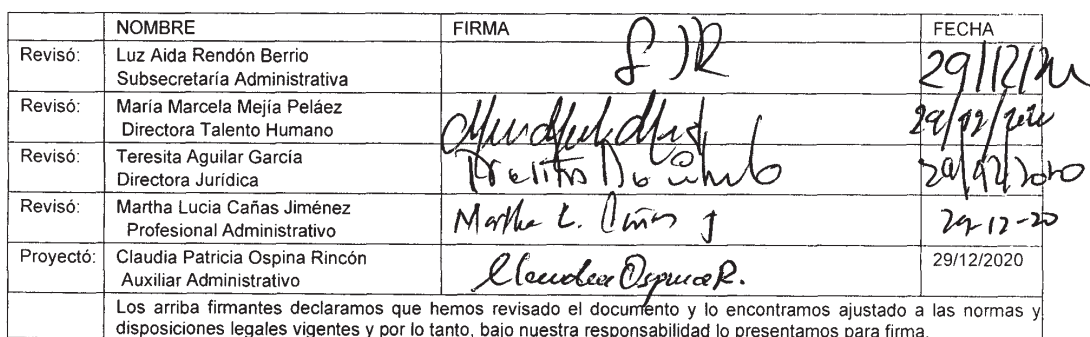 NOMBRE FIRMA FECHA
Revisó: Luz Aida Rendón Berrio
Subsecretaría Administrativa
29/12/20
Revisó: María Marcela Mejía Peláez
Directora Talento Humano
29/12/2020
Revisó: Teresita Aguilar García
Directora Jurídica
29/12/2020
Revisó: Martha Lucia Cañas Jiménez
Profesional Administrativo
Martha L. Cañas J 29-12-20
Proyectó: Claudia Patricia Ospina Rincón 29/12/2020
Auxiliar Administrativo
Claudia Ospina R.
Los arriba firmantes declaramos que hemos revisado el documento y lo encontramos ajustado a las normas y
disposiciones legales vigentes y por lo tanto, bajo nuestra responsabilidad lo presentamos para firma.